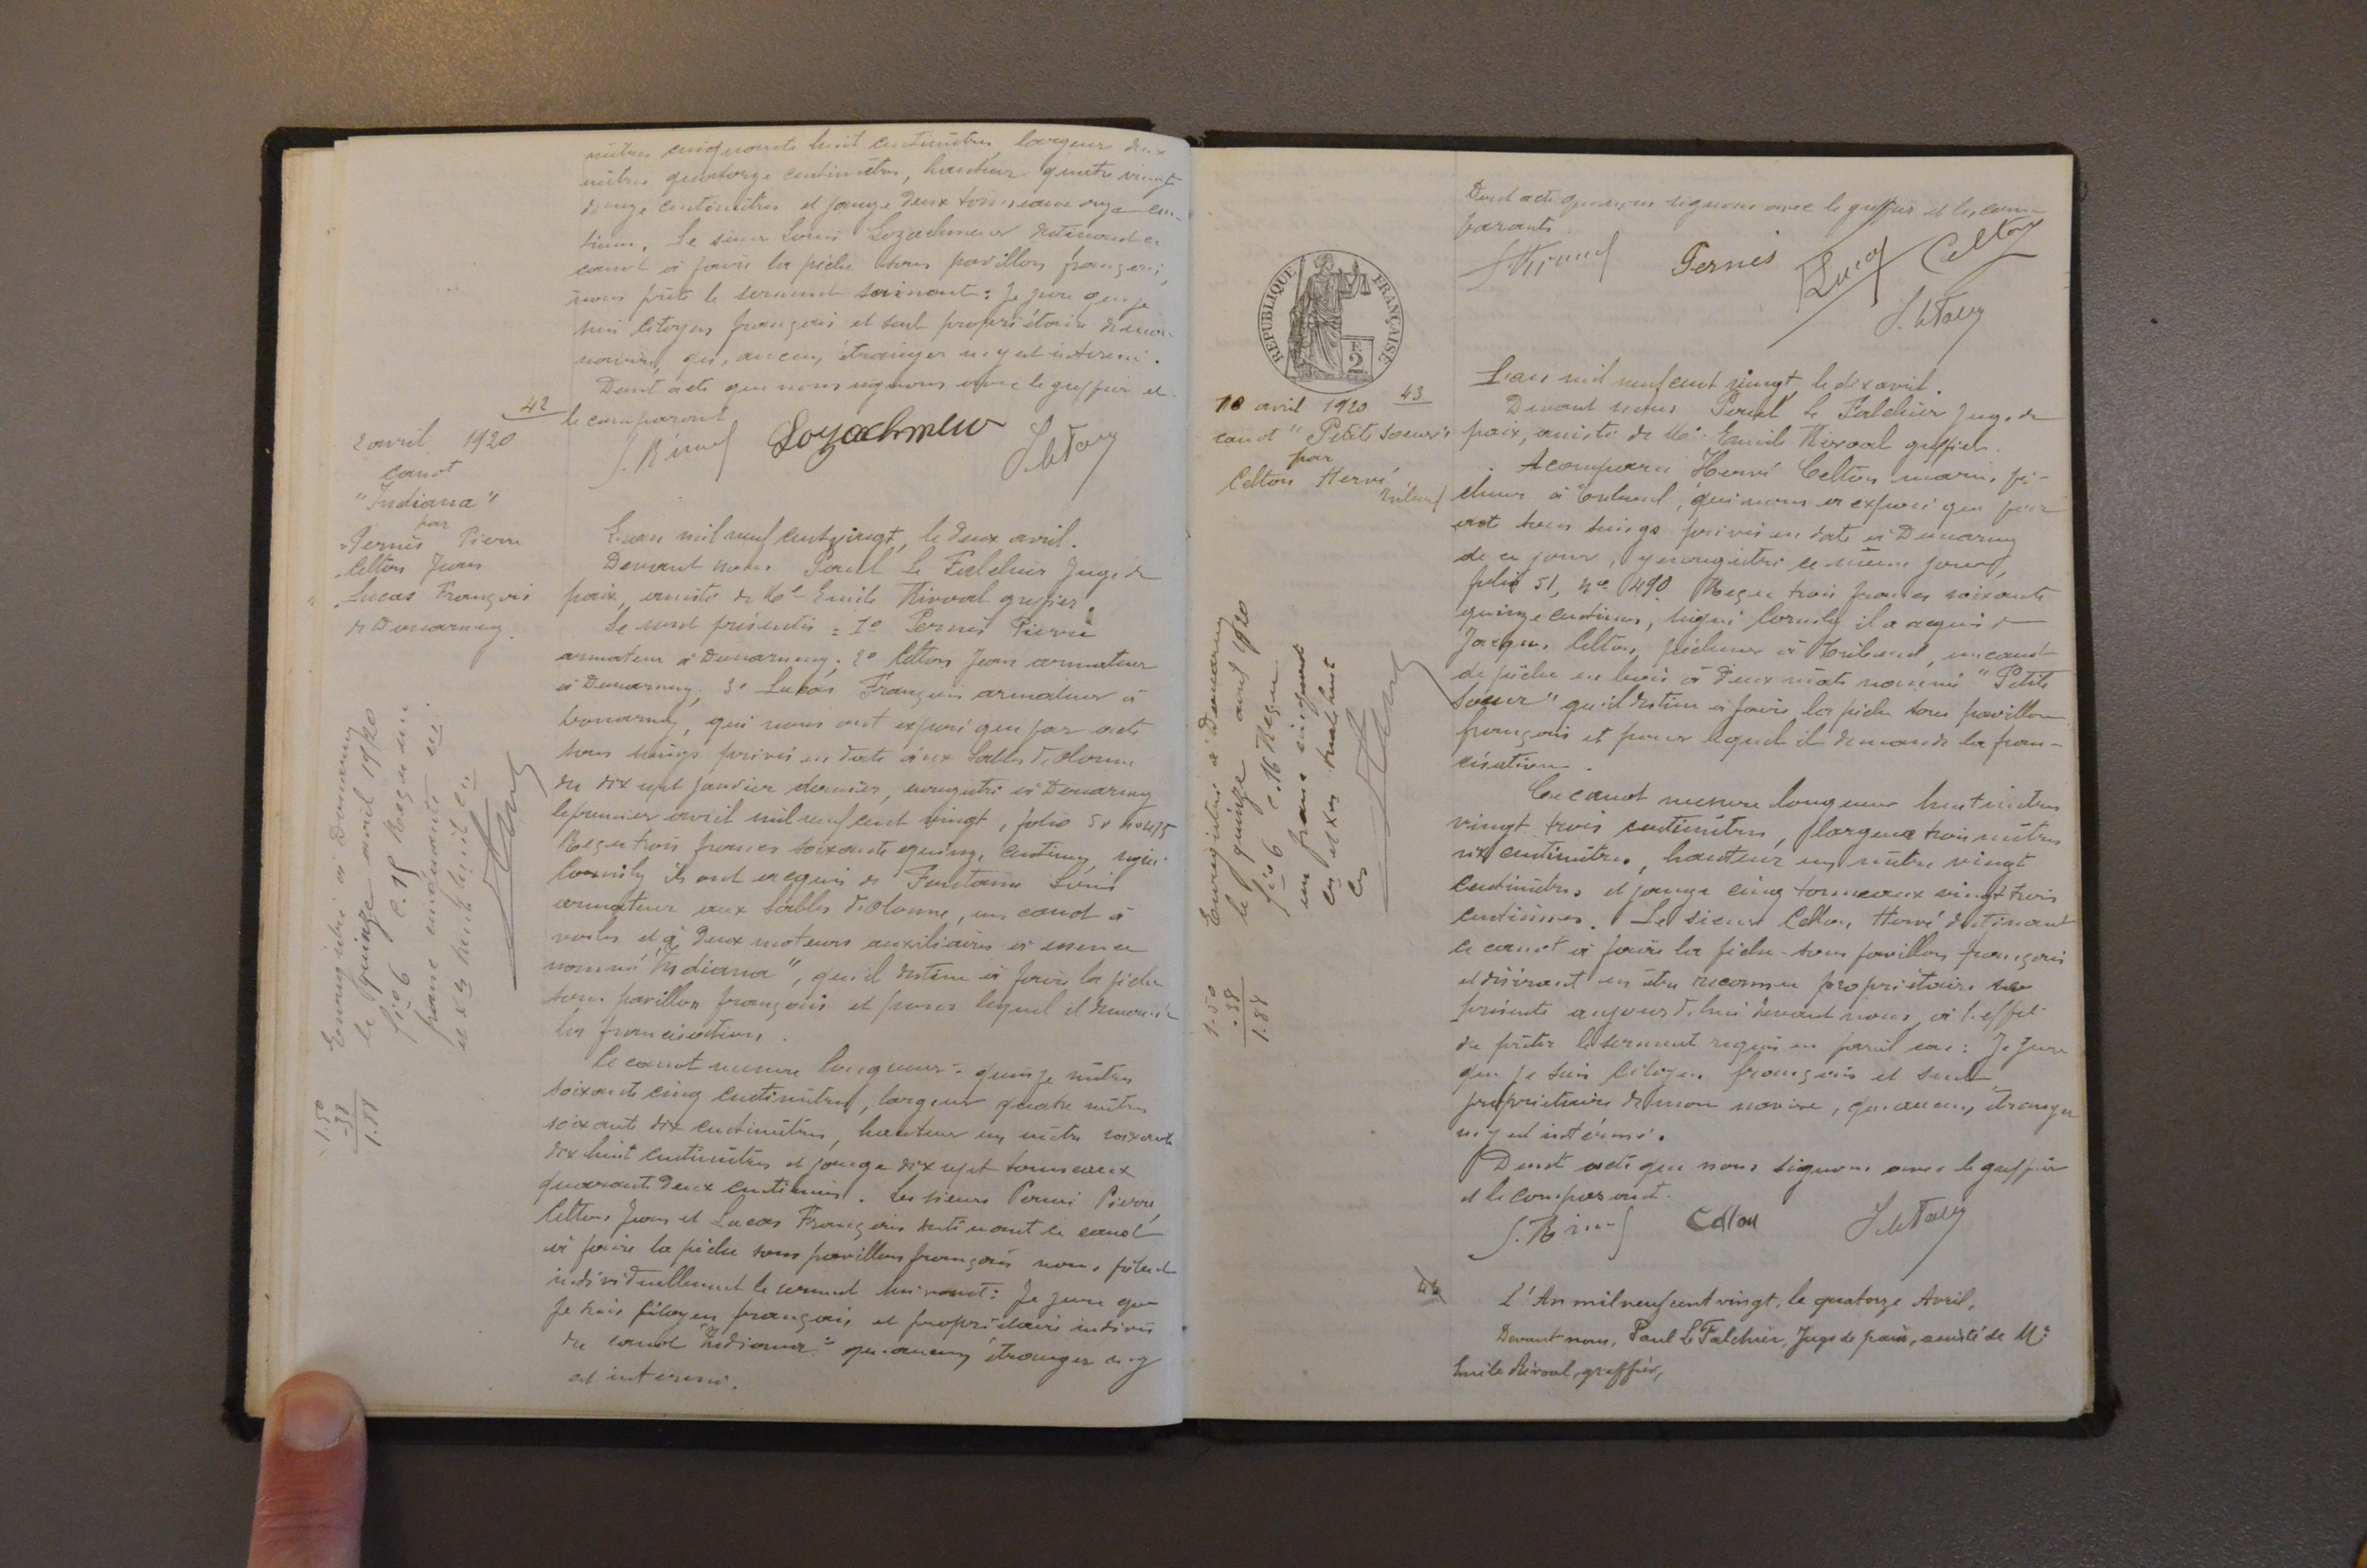 mètres cinquante huit centimètres largeur deux
mètres quatorze centimètres, hauteur quatre vingt
douze centimètres et jauge deux tonneaux onze cen-
tièmes. Le sieur Louis Lozachmeur destinant ce
canot à faire la pêche sous pavillon français,
nous prête le serment suivant : Je jure que je
suis citoyen français et seul propriétaire de mon
navire, qu'aucun étranger n'y est intéressé.
Dont acte que nous signons avec le greffier et
le comparant
Lozachmeur
42
2 avril 1920
canot
"Indiana"
par
Pernès Pierre
Celton Jean
Lucas François
de Douarnenez.
L'an mil neuf cent vingt, le deux avril.
Devant nous Paul Le Falchier Juge de
paix, assisté de Me Emile Rivoal greffier.
Se sont présentés : 1° Pernès Pierre
armateur à Douarnenez ; 2° Celton Jean armateur
à Douarnenez, 3° Lucas François armateur à
Douarnenez, qui nous ont exposé que par acte
sous seings privés en date aux Sables d'Olonne
du dix sept janvier dernier, enregistré à Douarnenez
le premier avril mil neuf cent vingt, folio 50
Reçu trois francs soixante quinze centimes, signé
Cornily ils ont acquis de
armateur aux Sables d'Olonne, un canot à
voiles et à deux moteurs auxiliaires à essence
nommé "Indiana", qu'il destine à faire la pêche
sous pavillon français et pour lequel il demande
la francisation.
Ce canot mesure longueur : quinze mètres
soixante cinq centimètres, largeur quatre mètres
soixante dix centimètres, hauteur un mètre soixante
dix huit centimètres et jauge dix sept tonneaux
quarante deux centièmes. Les sieurs Pernès Pierre,
Celton Jean et Lucas François destinant ce canot
à faire la pêche sous pavillon français nous prêtent
individuellement le serment suivant : Je jure que
je suis citoyen français et propriétaire indivis
du canot "Indiana" qu'aucun étranger n'y
est intéressé.
Enregistré à Douarnenez
le quinze avril 1920
fio 6 c. 15 Reçu un
franc cinquante
et exes trente huit ces
1.50
.38
1.88
Dont acte que nous signons avec le greffier et les com-
parants.
Pernès
Lucas
Celton
RÉPUBLIQUE FRANÇAISE
2
10 avril 1920
43
canot "Petite Soeur"
par
Celton Hervé
Tréboul
L'an mil neuf cent vingt, le dix avril.
Devant nous Paul Le Falchier Juge de
paix, assisté de Me Emile Rivoal greffier.
A comparu Hervé Celton marin pê-
cheur à Tréboul, qui nous a exposé que par
acte sous seings privés en date à Douarnenez
de ce jour, y enregistré ce même jour,
folio 51, no 490. Reçu trois francs soixante
quinze centimes, signé Cornily il a acquis de
Jacques Celton, pêcheur à Tréboul, un canot
de pêche en bois à deux mâts nommé "Petite
Soeur" qu'il destine à faire la pêche sous pavillon
français et pour lequel il demande la fran-
cisation.
Ce canot mesure longueur huit mètres
vingt trois centimètres, largeur trois mètres
six centimètres, hauteur un mètre vingt
centimètres et jauge cinq tonneaux vingt trois
centièmes. Le sieur Celton Hervé destinant
ce canot à faire la pêche sous pavillon français
et désirant en être reconnu propriétaire se
présente aujourd'hui devant nous à l'effet
de prêter le serment requis en pareil cas : Je jure
que je suis citoyen français et seul
propriétaire de mon navire, qu'aucun étranger
n'y est intéressé.
Dont acte que nous signons avec le greffier
et le comparant.
Celton
Enregistré à Douarnenez
le quinze avril 1920
fio 6 c. 16 Reçu
un franc cinquante
ces et exes trente huit
ces
1.50
.38
1.88
44
L'An mil neuf cent vingt, le quatorze Avril,
Devant nous, Paul Le Falchier, Juge de paix, assisté de Me
Emile Rivoal, greffier,